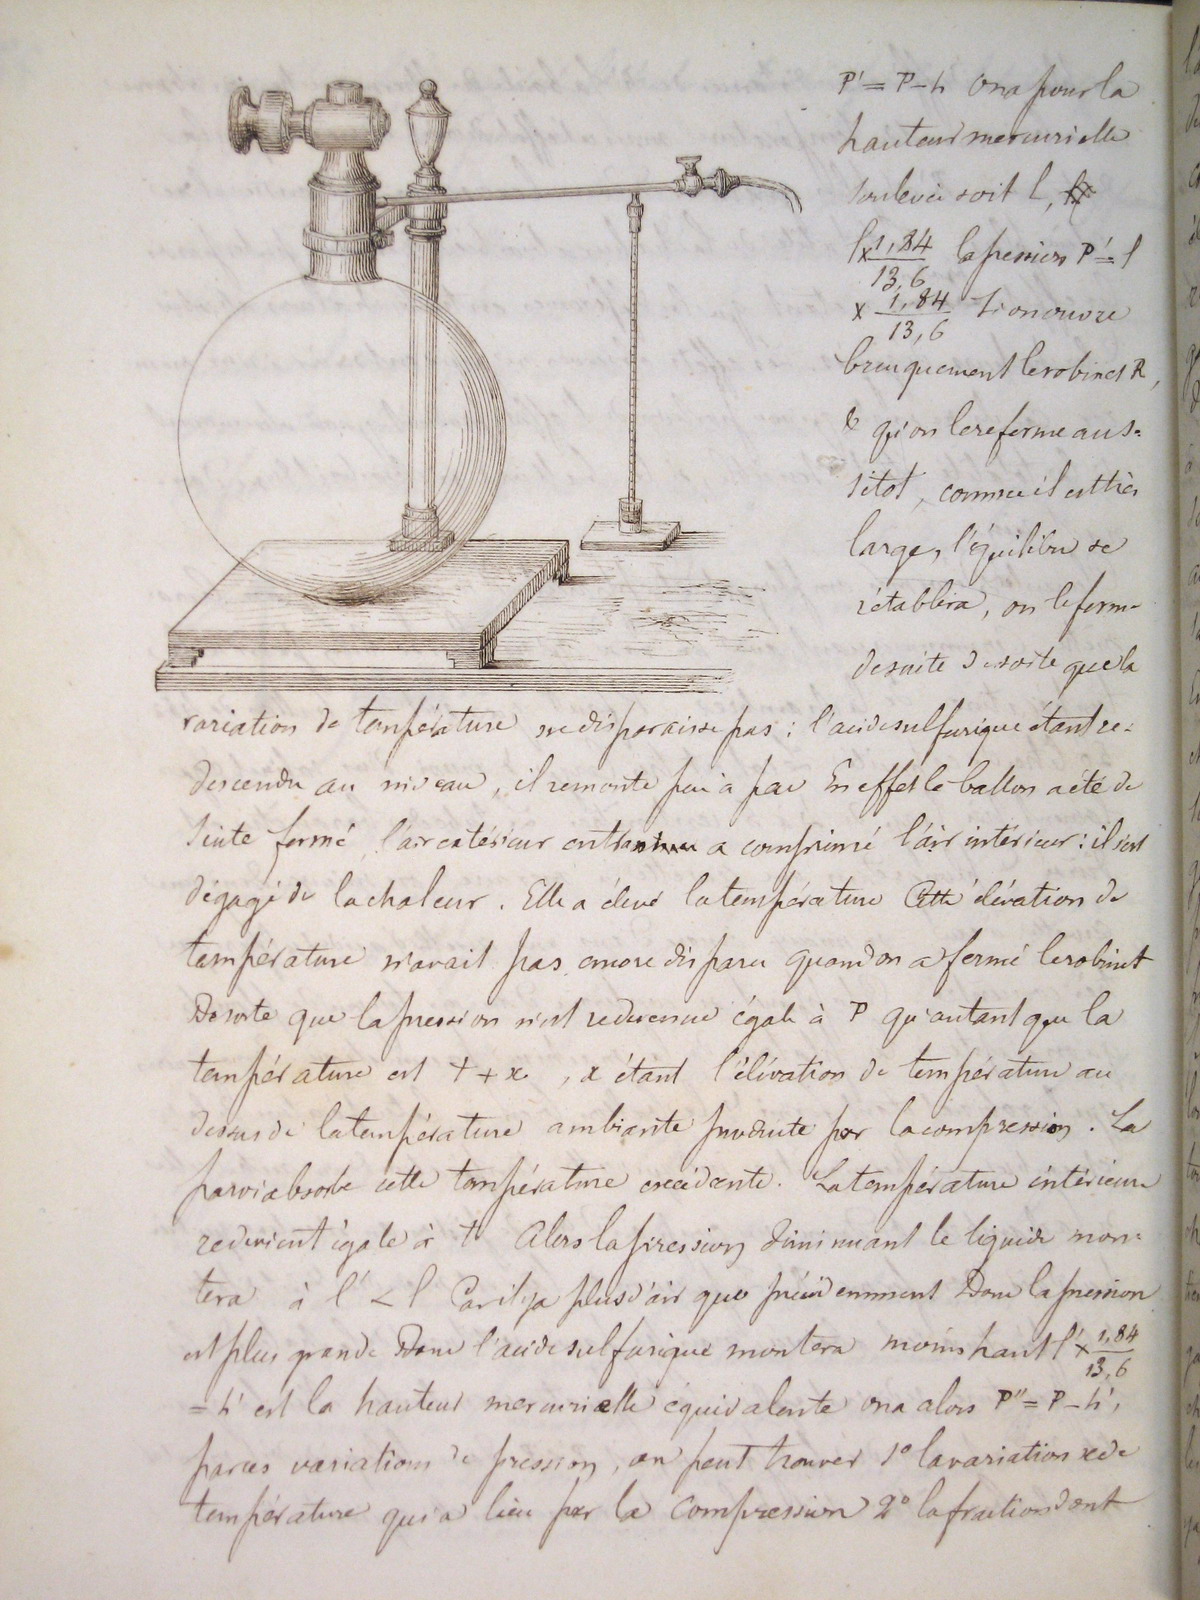 P' = P – h on a pour la
hauteur mercurielle
soulevée soit l,
l × 1,84/13,6 la pression P' = l
× 1,84/13,6 si on ouvre
brusquement le robinet R,
& qu'on le referme aus-
sitot, comme il est très
large, l'équilibre se
rétablira, on le ferme
de suite de sorte que la
variation de température ne disparaisse pas : l'acide sulfurique étant re-
descendu au niveau, il remonte peu à peu En effet le ballon a été de
suite fermé l'air extérieur entrant a comprimé l'air intérieur : il s'est
dégagé de la chaleur. Elle a élevé la température Cette élévation de
température n'avait pas encore disparu quand on a fermé le robinet
De sorte que la pression n'est redevenue égale à P qu'autant que la
température est t + x, x étant l'élévation de température au
dessus de la température ambiante produite par la compression. La
paroi absorbe cette température excédente. La température intérieure
redevient égale à t Alors la pression diminuant le liquide mon-
tera à l' < l Car il y a plus d'air que précédemment Donc la pression
est plus grande Donc l'acide sulfurique montera moins haut l' × 1,84/13,6
= h' est la hauteur mercurielle équivalente on a alors P'' = P – h',
par ces variations de pression, on peut trouver 1° la variation x de
température qui a lieu par la compression 2° la fraction dont